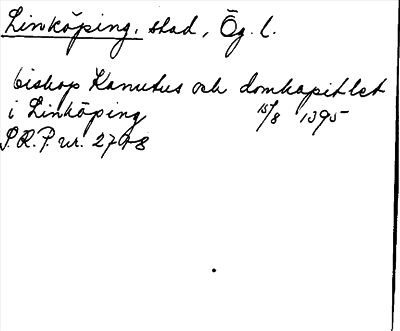 Linköping, stad, Ög. l.
biskop Kanutus och domkapitlet
i Linköping 15/8 1395
S.R.P. nr. 2708